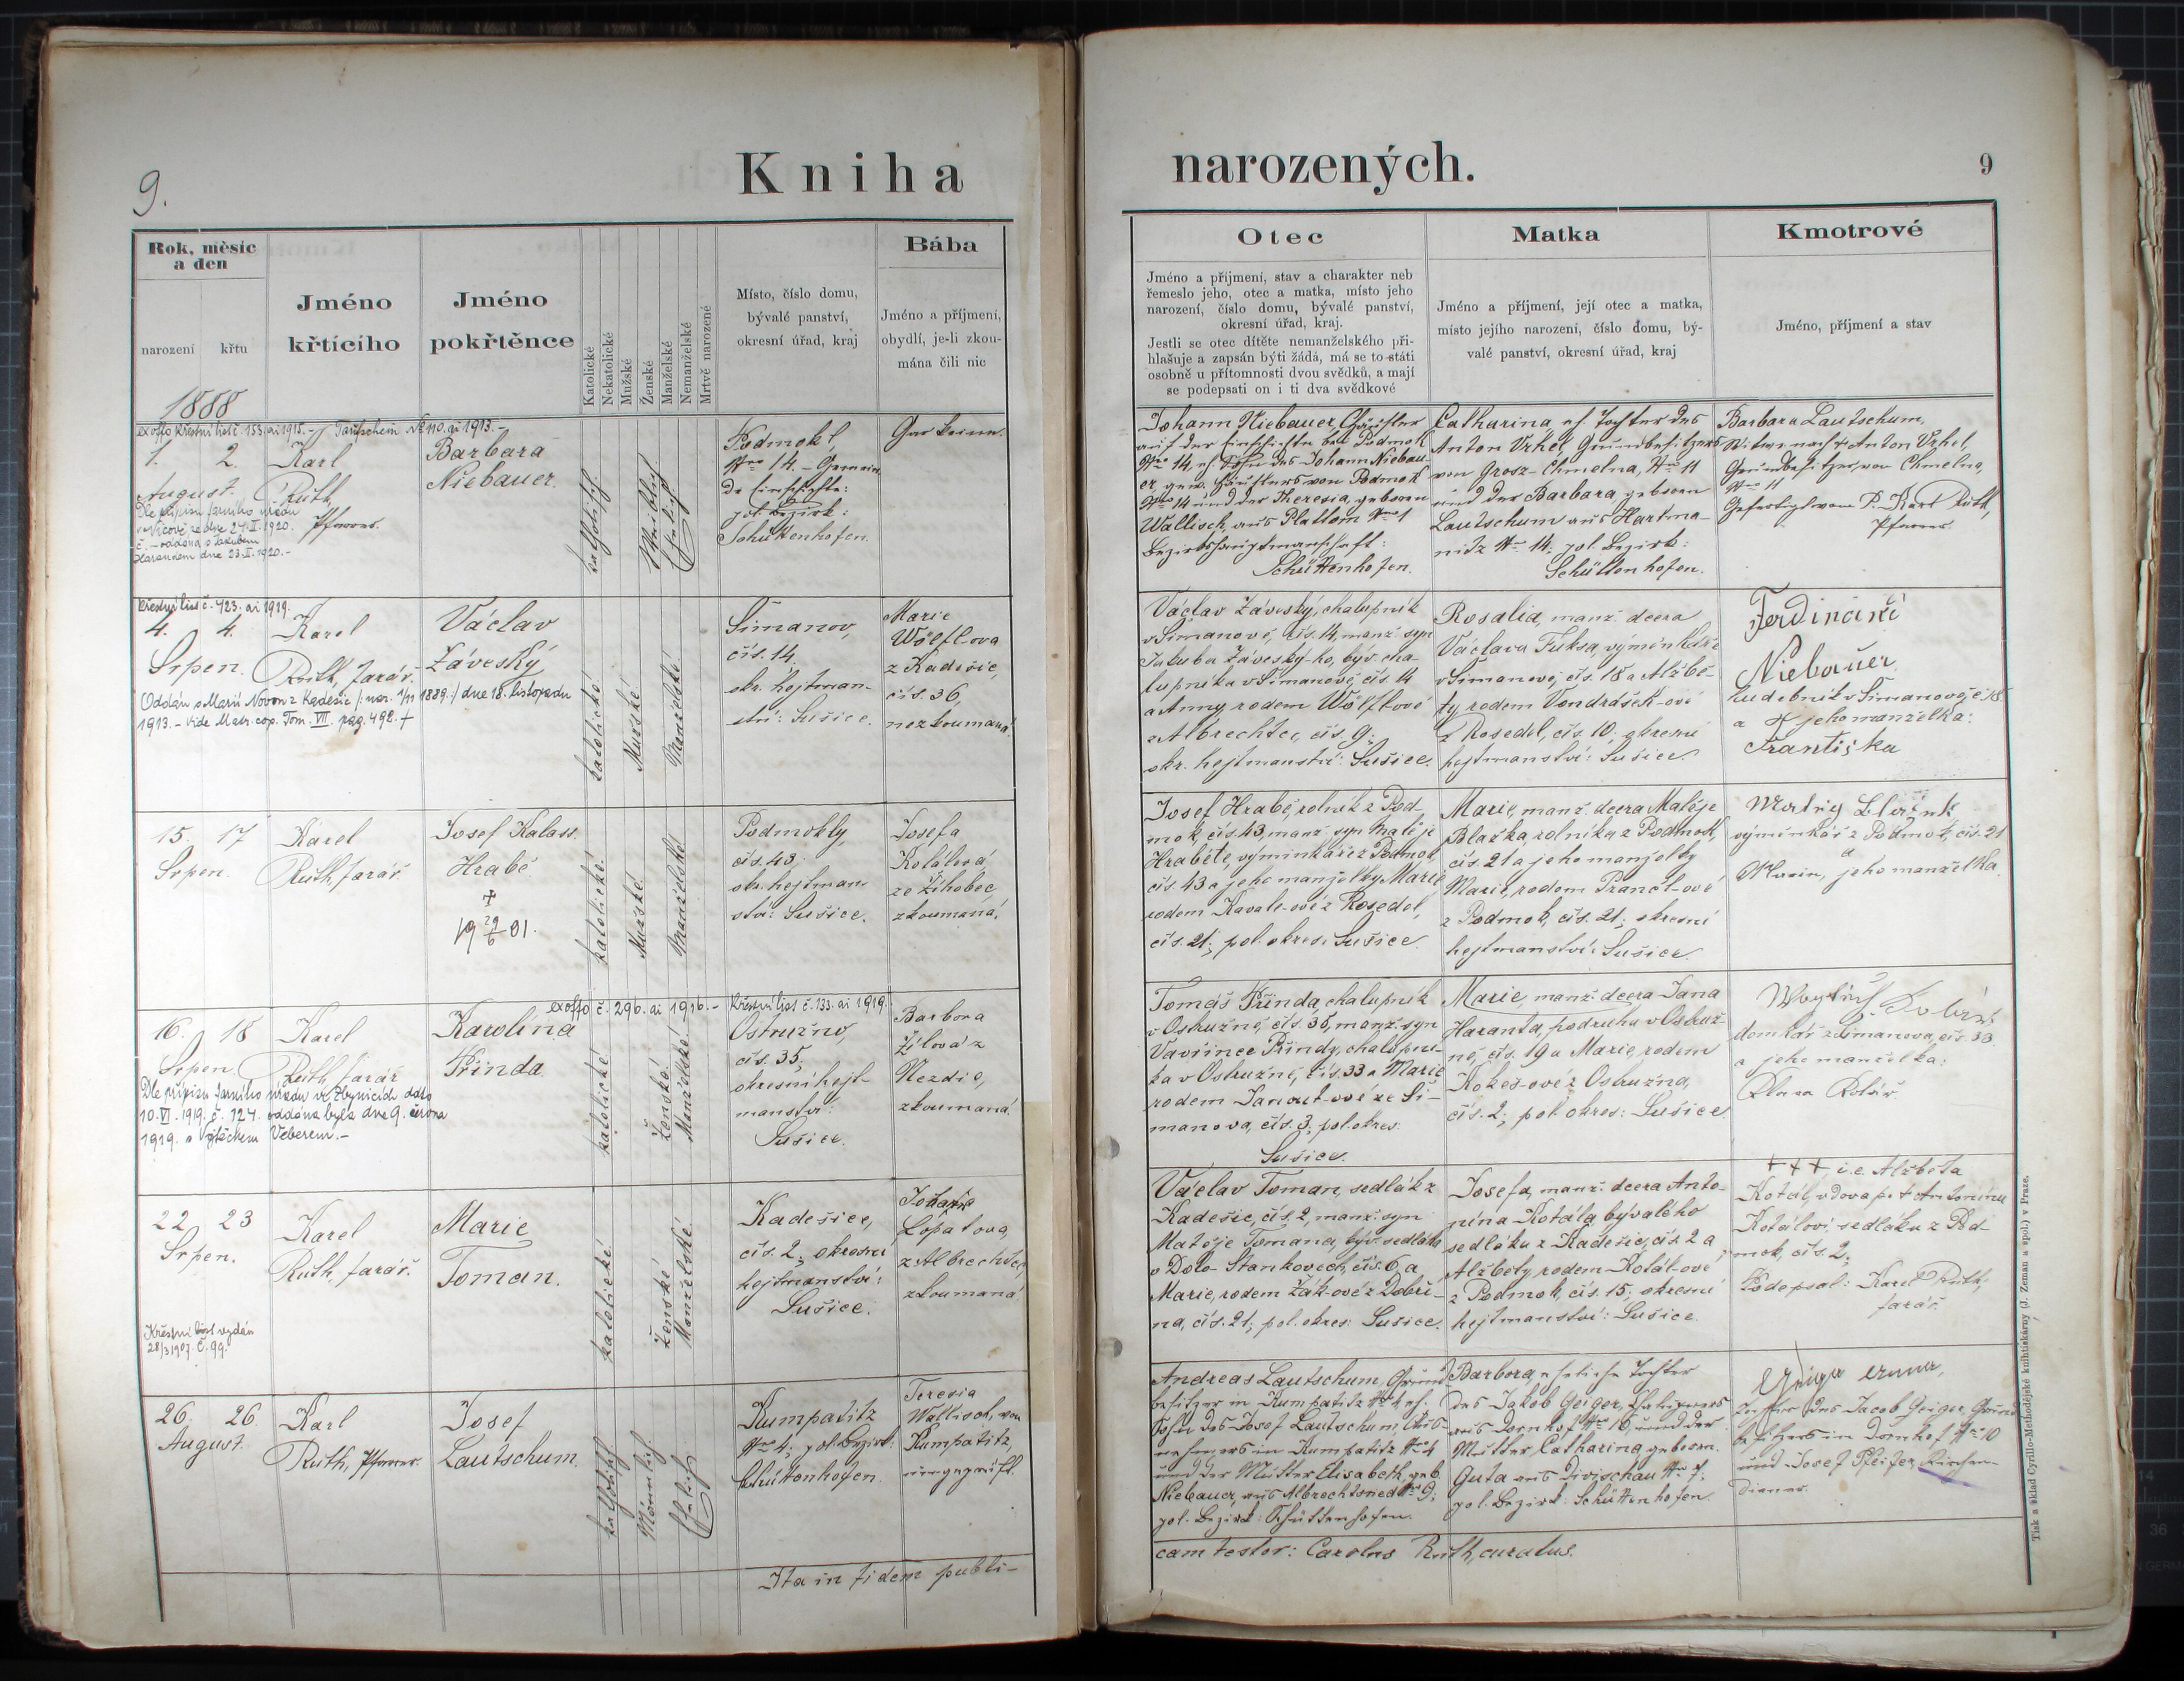 9.
Kniha
narozených.
9
Rok, měsíc
a den
narození
křtu
Jméno
křtícího
Jméno
pokřtěnce
Katolické
Nekatolické
Mužské
Ženské
Manželské
Nemanželské
Mrtvě narozené
Místo, číslo domu,
bývalé panství,
okresní úřad, kraj
Bába
Jméno a příjmení,
obydlí, je-li zkou-
mána čili nic
Otec
Jméno a příjmení, stav a charakter neb
řemeslo jeho, otec a matka, místo jeho
narození, číslo domu, bývalé panství,
okresní úřad, kraj.
Jestli se otec dítěte nemanželského při-
hlašuje a zapsán býti žádá, má se to státi
osobně u přítomnosti dvou svědků, a mají
se podepsati on i ti dva svědkové
Matka
Jméno a příjmení, její otec a matka,
místo jejího narození, číslo domu, bý-
valé panství, okresní úřad, kraj
Kmotrové
Jméno, příjmení a stav
1888
ex offo Křestní list č. 153. ai 1915. - Taufschein No 110. ai 1913. -
1. 2.
August.
Dle přípisu farního úřadu
ze dne 24. II. 1920.
č. - oddána s Jakubem
dne 23. II. 1920. -
Karl
Ruth,
Pfarrer.
Barbara
Niebauer.
katholisch
Weiblich
Ehelich
Podmokl,
Nro 14. - Gemein
de Einschichte:
pol. Bezirk:
Schüttenhofen.
Gar keine.
Johann Niebauer Häusler
auf der Einschichte bei Podmok
Nro 14, eh. Sohn des Johann Niebau-
er, gew. Häuslers von Podmok
Nro 14 und der Theresia, geboren
Wallisch, aus Plattorn Nro 1
Bezirkshauptmannschaft:
Schüttenhofen.
Catharina eh. Tochter des
Anton Vrhel, Grundbesitzers
von Grosz-Chmelna, Nro 11
und der Barbara geboren
Lautschum aus Hartma-
nitz Nro 14; pol. Bezirk:
Schüttenhofen.
Barbara Lautschum,
Witwe nach + Anton Vrhel,
Grundbesitzer, von Chmelna,
Nro 11
Gefertigt vom P. Karl Ruth,
Pfarrer.
Křestní list č. 423. ai 1919.
4. 4.
Srpen.
Karel
Ruth, farář.
Václav
Záveský.
(Oddán s Marií Novou z Kadešic /: nar. 1/11 1889 :/ dne 18. listopadu
1913. - Vide Matr. cop. Tom. VII. pag. 492. +
katolické
Mužské
Manželské
Šimanov,
čís. 14,
okr. hejtman-
ství: Sušice.
Marie
Wölflova
z Kadešic,
čís. 36,
nezkoumaná.
Václav Záveský, chalupník
v Šimanově, čís. 14, manž. syn
Jakuba Záveský-ho, býv. cha-
lupníka v Šimanově, čís. 14
a Anny rodem Wölflové
z Albrechtec, čís. 9;
okr. hejtmanství: Sušice.
Rosalia, manž. dcera
Václava Fuksa, výminkáře
v Šimanově, čís. 18 a Alžbě-
ty rodem Vondrášek-ové
z Rosedel, čís. 10; okresní
hejtmanství: Sušice.
Ferdinand
Niebauer
hudebník v Šimanově, č. 18.
a jeho manželka:
Františka
15. 17
Srpen.
Karel
Ruth, farář.
Josef Kalass.
Hrabě
+
19 29/6 01.
katolické.
Mužské.
Manželské
Podmokly,
čís. 43;
okr. hejtman
ství: Sušice.
Josefa
Kolářová
ze Žihobec
zkoumaná.
Josef Hrabě, rolník z Pod-
mok, čís. 43, manž. syn Matěje
Hraběte, výminkáře z Podmok,
čís. 43 a jeho manželky Marie
rodem Kavale-ové z Rosedel,
čís. 21; pol. okres: Sušice.
Marie, manž. dcera Matěje
Blažka, rolníka z Podmok,
čís. 21 a jeho manželky
Marie, rodem Prancl-ové
z Podmok, čís. 21; okresní
hejtmanství: Sušice.
výminkář z Podmok, čís. 21
a
jeho manželka.
ex offo č. 296. ai 1916. - Křestní list č. 133. ai 1919.
16. 18
Srpen.
Karel
Ruth, farář
Karolina
Přinda.
Dle přípisu farního úřadu ve Zbynicích ddto
10. VI. 1919. č. 124. oddána byla dne 9. června
1919. s Vojtěchem Veberem. -
katolické
Ženské.
Manželské.
Ostružno,
čís. 35;
okresní hejt-
manství:
Sušice.
Barbora
Žílová z
Nezdic,
zkoumaná.
Tomáš Přinda, chalupník
v Ostružně, čís. 35, manž. syn
Vavřince Přindy, chalupní-
ka v Ostružně, čís. 33 a Marie
rodem Janout-ové ze Ši-
manova, čís. 3; pol. okres:
Sušice.
Marie, manž. dcera Jana
Haranta, podruha v Ostruž-
ně, čís. 19 a Marie, rodem
Kokeš-ové z Ostružna,
čís. 2; pol. okres: Sušice.
domkář z Šimanova, čís. 33.
a jeho manželka:
Kolář
22. 23
Srpen.
Karel
Ruth, farář.
Marie
Toman.
Křestní list vydán
28/3 1907. č. 99.
katolické.
Ženské
Manželské.
Kadešice,
čís. 2; okresní
hejtmanství:
Sušice.
Johana
Lopatova,
z Albrechtec,
zkoumaná.
Václav Toman, sedlák z
Kadešic, čís. 2, manž. syn
Matěje Tomana, býv. sedláka
v Dolo-Stankovech, čís. 6, a
Marie, rodem Žák-ové z Dobří-
na, čís. 21; pol. okres: Sušice.
Josefa, manž. dcera Anto-
nína Kotála bývalého
sedláka z Kadešic, čís. 2 a
Alžběty, rodem Kotál-ové
z Podmok, čís. 15; okresní
hejtmanství: Sušice.
+++, i.e. Alžběta
Kotál, vdova po + Antonínu
Kotálovi sedláku z Pod-
mok, čís. 2;
Podepsal: Karel Ruth,
farář.
26. 26.
August.
Karl
Ruth, Pfarrer.
Josef
Lautschum.
katholisch
Männlich.
Ehelich
Kumpatitz
Nro 4; pol. Bezirk:
Schüttenhofen.
Teresia
Wallisch, von
Kumpatitz,
ungeprüft.
Andreas Lautschum, Grund-
besitzer in Kumpatitz Nro 4 eh.
Sohn des Josef Lautschum, Aus-
nehmers in Kumpatitz Nro 4
und der Mutter Elisabeth, geb.
Niebauer, aus Albrechtsried Nro 9;
pol. Bezirk: Schüttenhofen.
Barbora, eheliche Tochter
des Jakob Geiger,
aus Dornhof Nro 16, und der
Mutter Catharina, geboren
Guta aus Divischau Nro 7;
pol. Bezirk: Schüttenhofen.
Geiger Anna,
Tochter des Jacob Geiger, Grund
besitzers in Dornhof Nro 10
und Josef Pfeifer, Kirchen-
diener.
Ita in fidem publi-
cam testor: Carolus Ruth, curatus.
Tisk a sklad Cyrillo-Methodějské knihtiskárny (J. Zeman a spol.) v Praze.